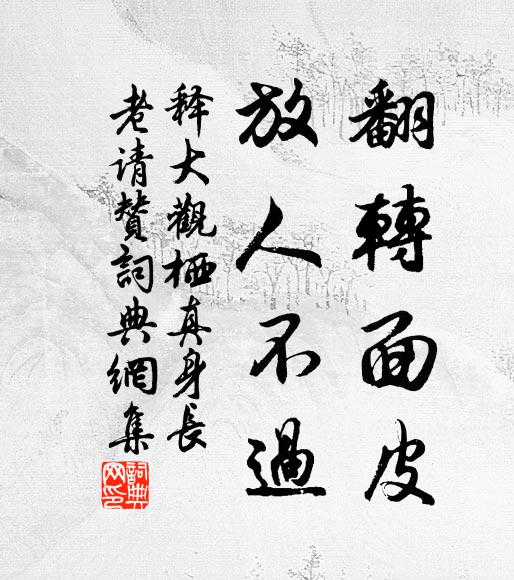 翻轉面皮
放人不過
释大觀栖真身長
老请赞詞典網集
詞典网印